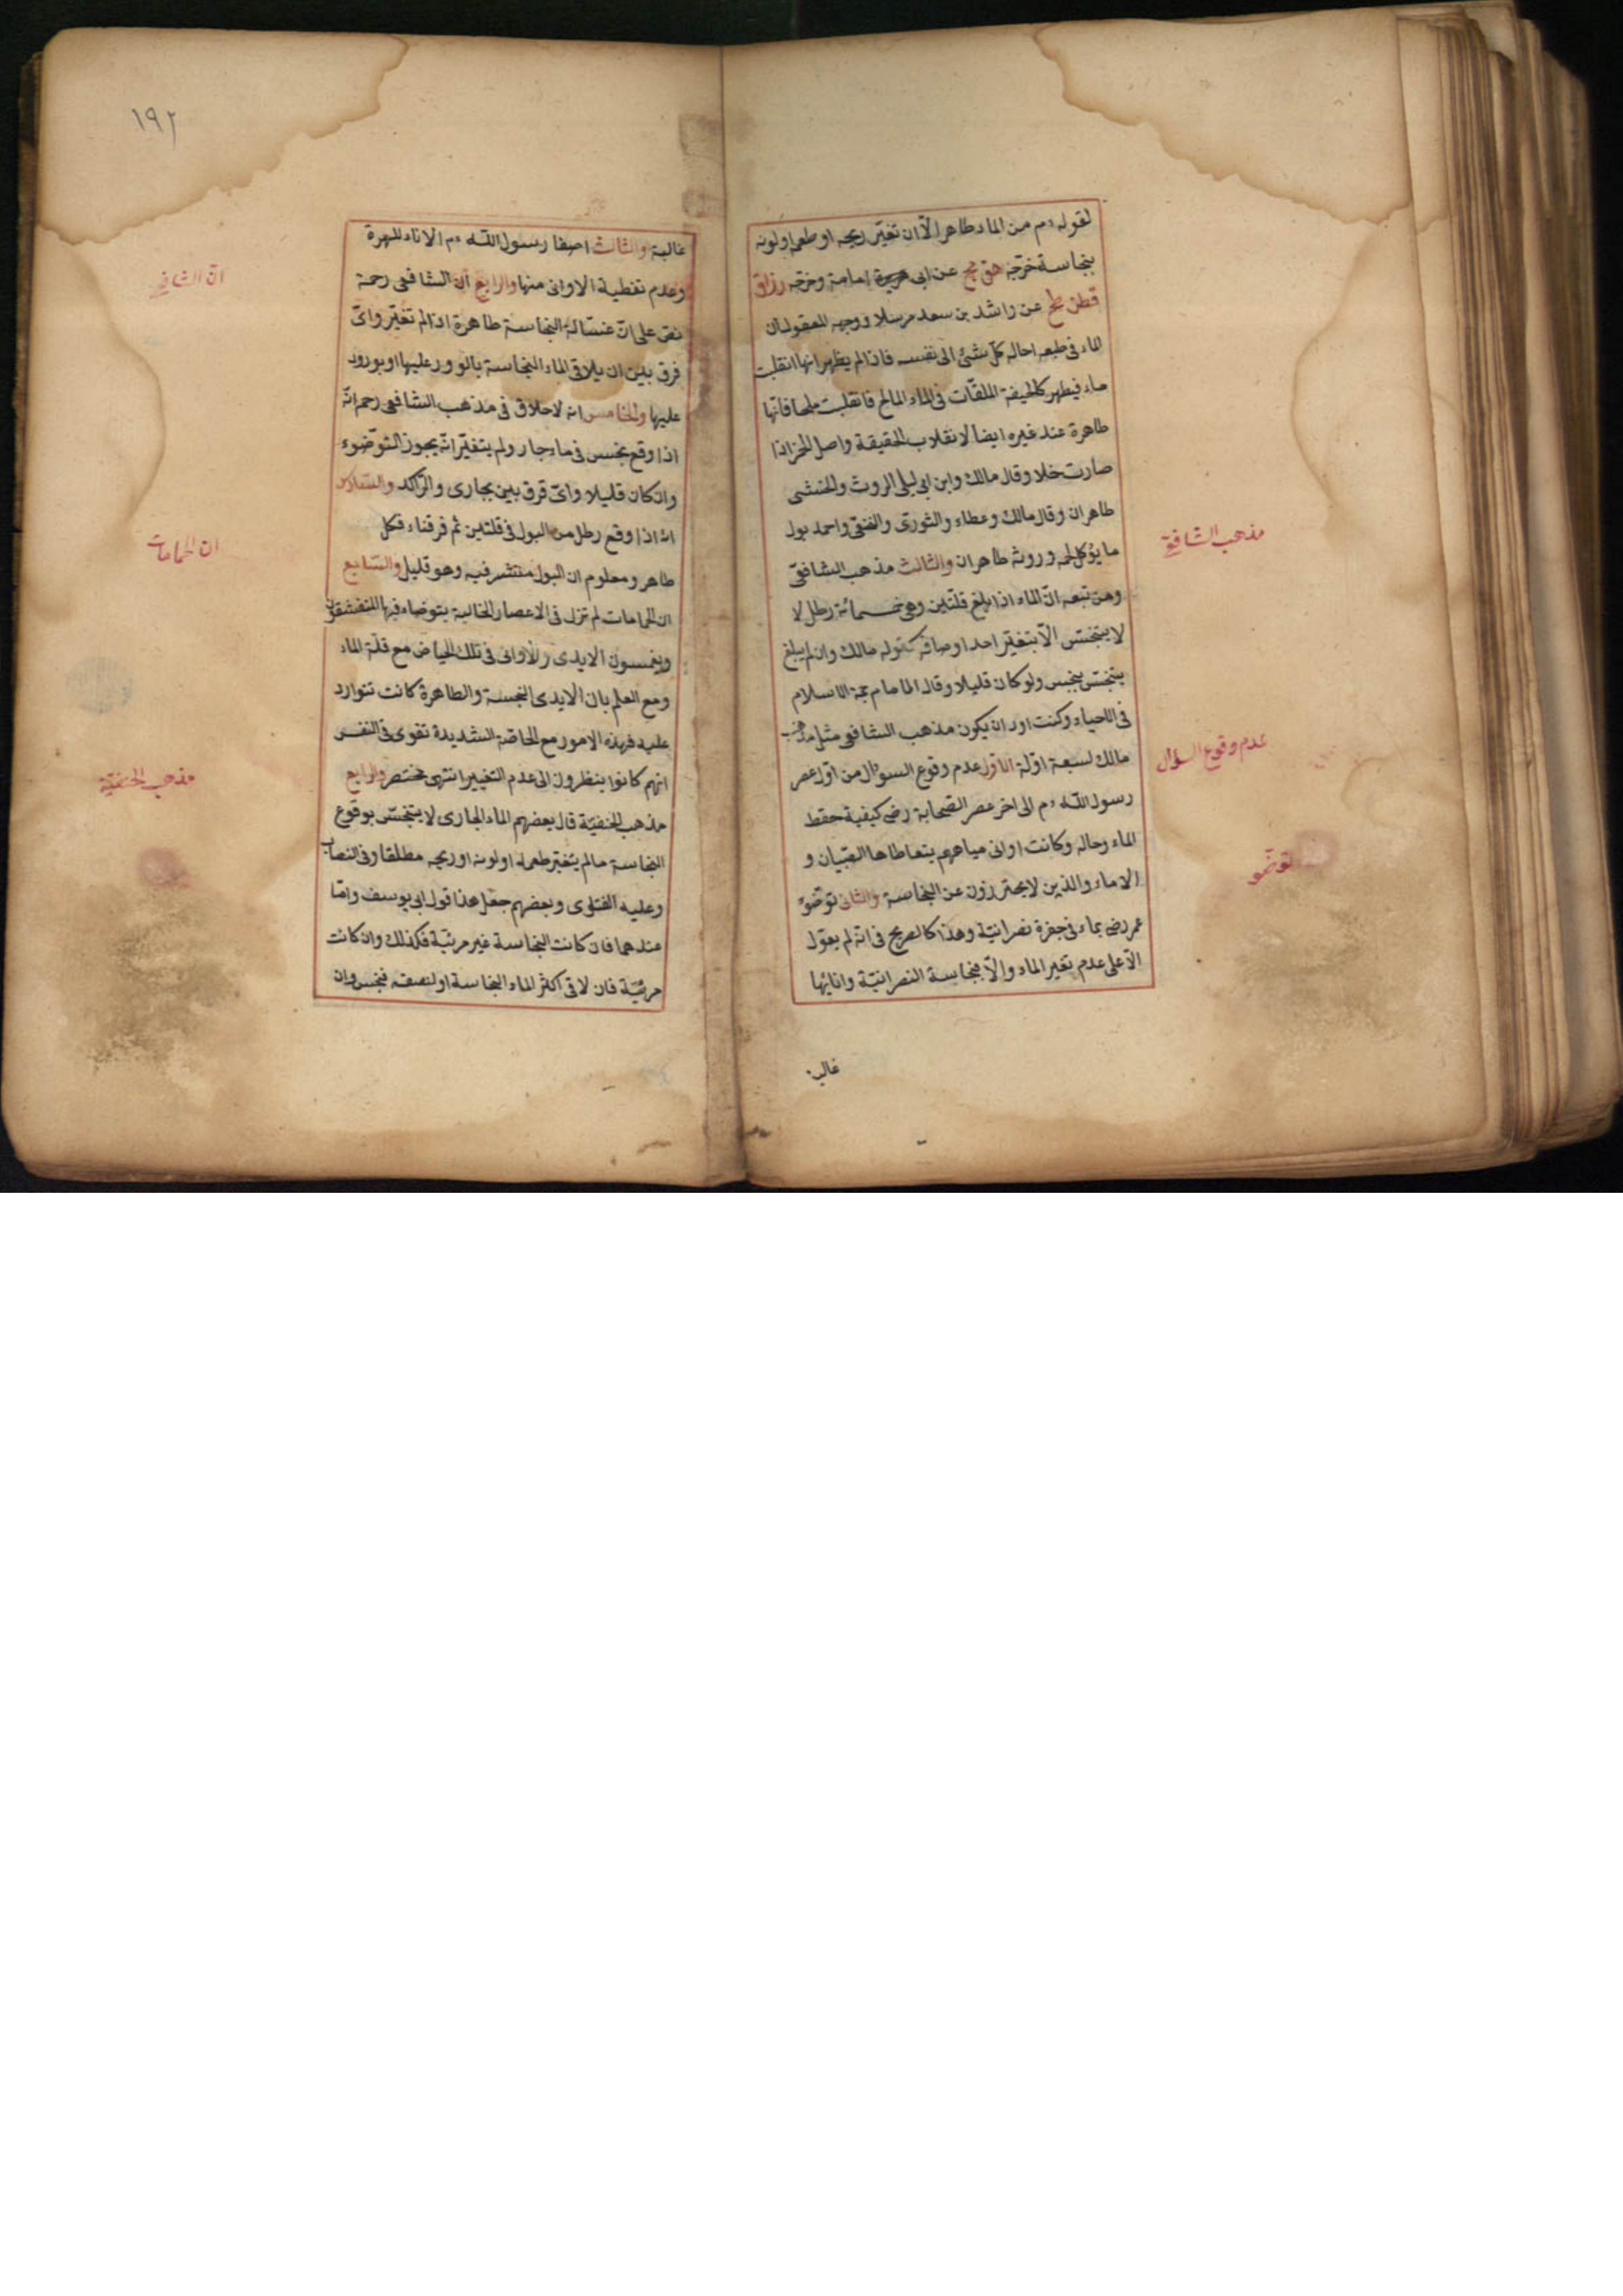 لقوله ءم من الماء طاهر الّا ان تغيّر ريحه او طعمه او لونه
بنجاسة خرّجه هق مج عن ابى امامة وخرّجه رزاق
قطن طح عن راشد بن سعد مرسلا ووجهه المعقول ان
الماء فى طبعه احاله كلّ شئ الى نفسه فاذا لم يظهر انها انقلبت
ماء فيطهر كالجيفة الملقات فى الماء المالح فانقلبت ملحا فانّها
طاهرة عند غيره ايضا لانقلاب الحقيقة واصل الخمر اذا
صارت خلا وقال مالك وابن ابى ليلى الروث والخنثى
طاهران وقال مالك وعطاء والثورى والنخعى واحمد بول
ما يؤكل لحمه وروثه طاهران والثالث مذهب الشافعّى
ومن تبعه انّ الماء اذا بلغ قلّتين وهى خمسمائة رطل لا
لا يتنجّس الّا بتغيّر احد اوصافه كقوله مالك وان لم يبلغ
يتنجّس بنجس ولو كان قليلا وقال الامام حجة الاسلام
فى الاحياء وكنت اود ان يكون مذهب الشافعى مثل مذهب
مالك لسبعة ادلّة الاوّل عدم وقوع السوال من اوّل عصر
رسول اللّه ءم الى اخر عصر الصحابة رضى كيفية حفظ
الماء وحاله وكانت اوانى مياههم يتعاطاها الصّبيان و
الاماء والذين لا يحترزون عن النجاسة والثانى توضّؤ
عمر رضى بماء فى جرة نصرانيّة وهذا كالصريح فى انّه لم يعوّل
الّا على عدم تغير الماء والّا فنجاسة النصرانيّة وانائها
غالبه
مذهب الشافعى
عدم وقوع السؤال
توضّؤ
١٩٢
غالبة والثالث اصغا رسول اللّه ءم الاناء للهرة
وعدم تغطية الاوانى منها والرابع انّ الشافعى رحمة
نصّ على انّ غسّالة النجاسة طاهرة اذا لم تغيّر واىّ
فرق بين ان يلاقى الماء النجاسة بالورود عليها او بورود
عليها والخامس انه لا خلاق فى مذهب الشافعى رحم انّه
اذا وقع نجس فى ماء جار ولم يتغيّر انّه يجوز التوّضوء
وان كان قليلا واىّ فرق بين جارى والرّاكد والسّادس
انه اذا وقع رطل من البول فى قلتين ثم فرقناه فكل
طاهر ومعلوم ان البول منتشر فيه وهو قليل والسّابع
ان الحمامات لم تزل فى الاعصار الخالية يتوضاء فيها المتقشفون
ويغمسون الايدى والاوانى فى تلك الحياض مع قلّة الماء
ومع العلم بان الايدى النجسة والطاهرة كانت تتوارد
عليه فهذه الامور مع الحاجة الشديدة تقوى فى النفس
انهم كانوا ينظرون الى عدم التغيير انتهى مختصر والرابع
مذهب الحنفيّة قال بعضهم الماء الجارى لا يتنجّس بوقوع
النجاسة ما لم يتغير طعمه او لونه او ريحه مطلقا وفى النصاب
وعليه الفتوى وبعضهم جعل هذا قول ابى يوسف وامّا
عندهما فان كانت النجاسة غير مرئيّة فكذلك وان كانت
مرئيّة فان لاقى اكثر الماء النجاسة او لنصفه فنجس وان
انّ الشافعى
ان الحمامات
مذهب الحنفيّة